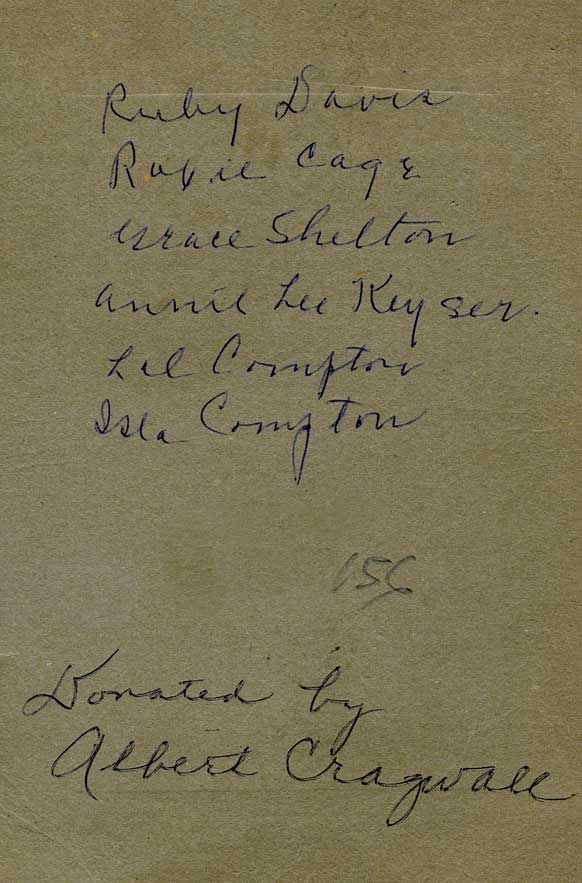 Ruby Davis
Roxie Cage
Grace Shelton
Annie Lee Keyser.
Lil Compton
Isla Compton
156
Donated by
Albert Cragwall